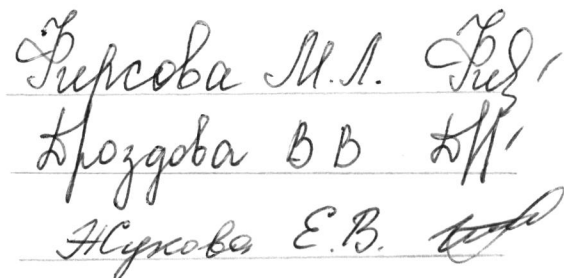 Фирсова М.Л.
Дроздова В В
Жукова Е.В.